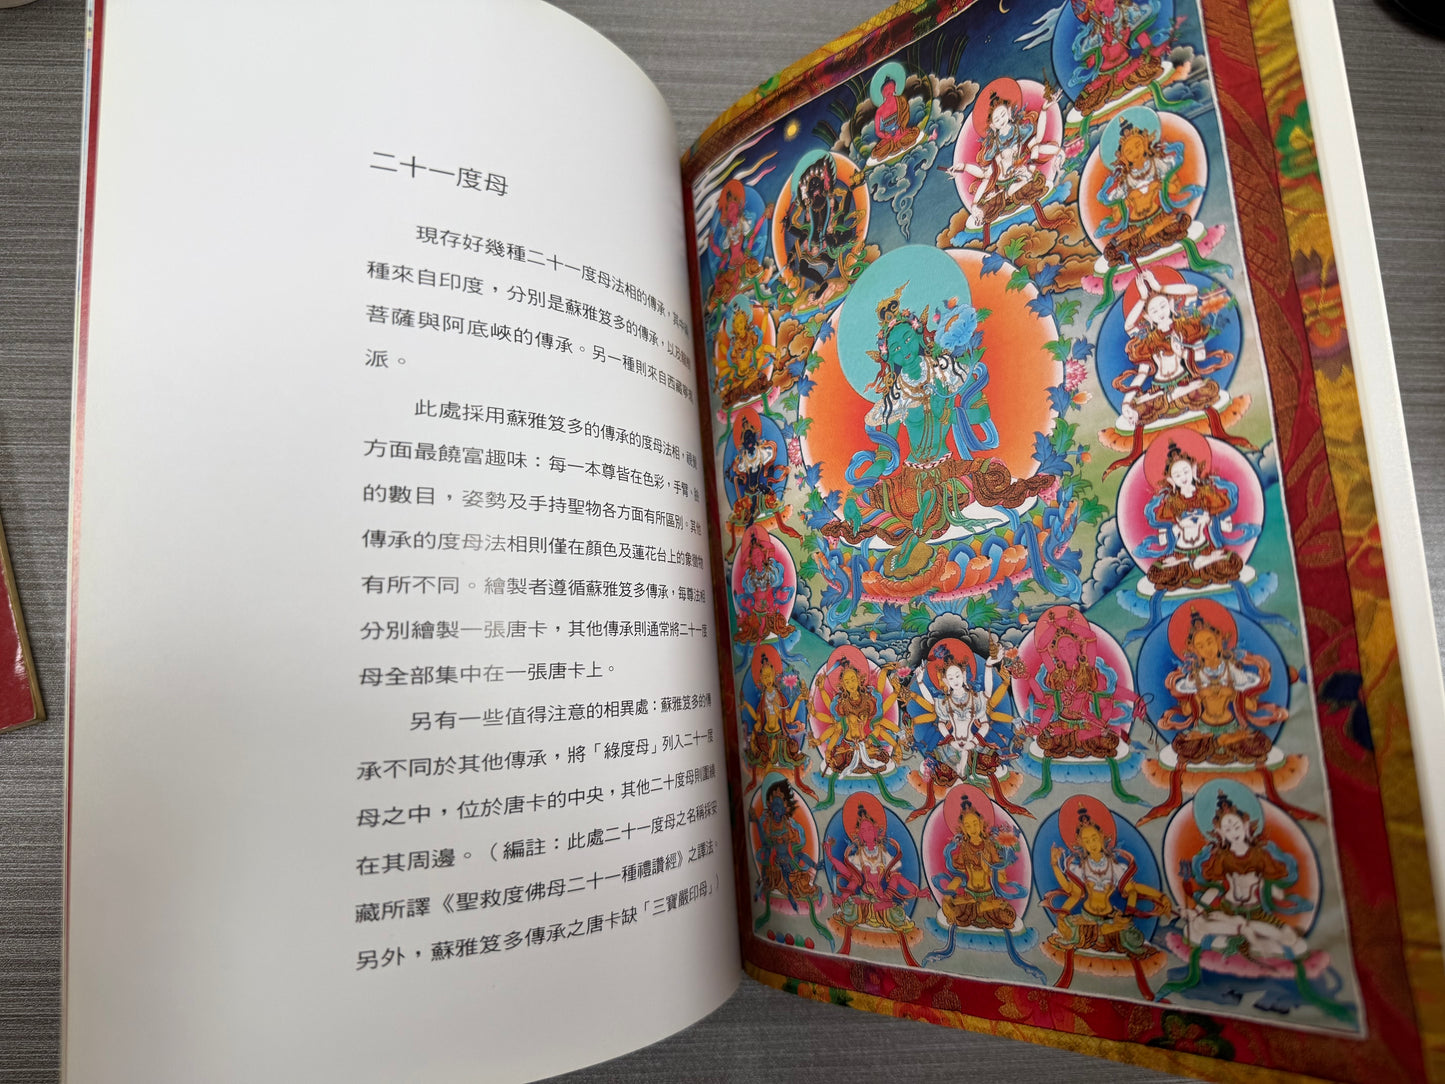 二十一度母
現存好幾種二十一度母法相的傳承，其中兩
種來自印度，分別是蘇雅笈多的傳承，以及龍樹
菩薩與阿底峽的傳承。另一種則來自西藏寧瑪
派。
此處採用蘇雅笈多的傳承的度母法相，視覺
方面最饒富趣味：每一本尊皆在色彩，手臂、
的數目，姿勢及手持聖物各方面有所區別。其他
傳承的度母法相則僅在顏色及蓮花台上的象徵物
有所不同。繪製者遵循蘇雅笈多傳承，每尊法相
分別繪製一張唐卡，其他傳承則通常將二十一度
母全部集中在一張唐卡上。
另有一些值得注意的相異處：蘇雅笈多的傳
承不同於其他傳承，將「綠度母」列入二十一度
母之中，位於唐卡的中央，其他二十度母則圍繞
在其周邊。（編註：此處二十一度母之名稱採安
藏所譯《聖救度佛母二十一種禮讚經》之譯法。
另外，蘇雅笈多傳承之唐卡缺「三寶嚴印母」）